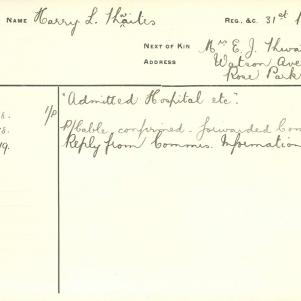 NAME Harry L. Thwaites REG. &C. 31st
NEXT OF KIN Mrs E. J. Thwa
ADDRESS Watson Ave
Rose Park
"Admitted Hospital etc."
P/Cable confirmed - forwarded Com
Reply from Commis. Information